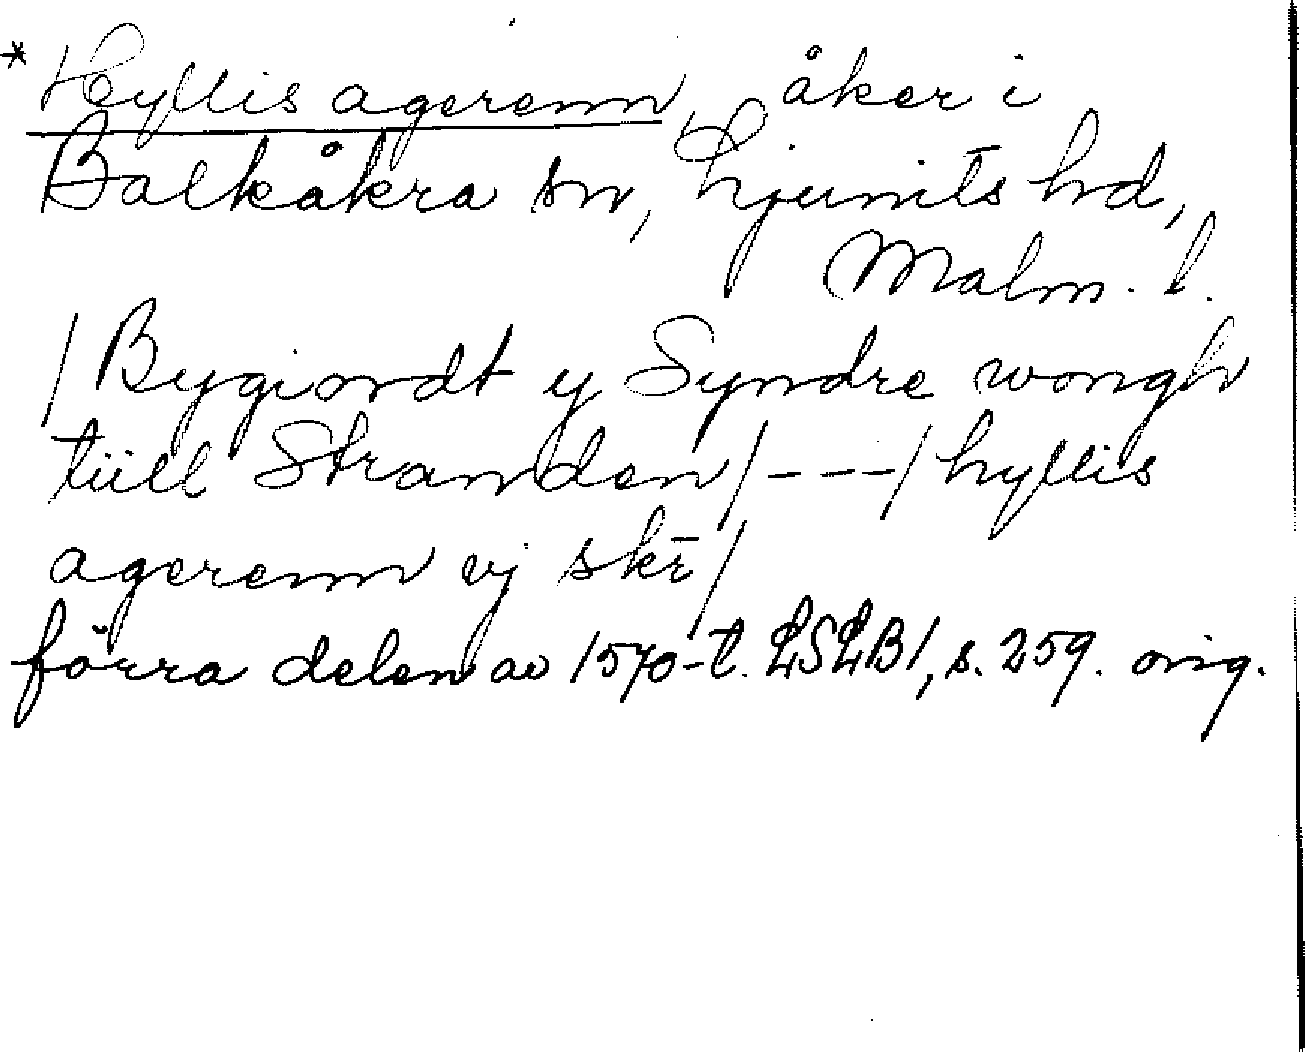 * Hyllis agerenn, åker i
Balkåkra sn, Ljunits hd,
Malm. l.
/Bygiondt y Syndre wongh
tiill Stranden/---/hyllis
agerenn ej skr̄/
förra delen av 1570-t. LSLB1, s. 259. orig.